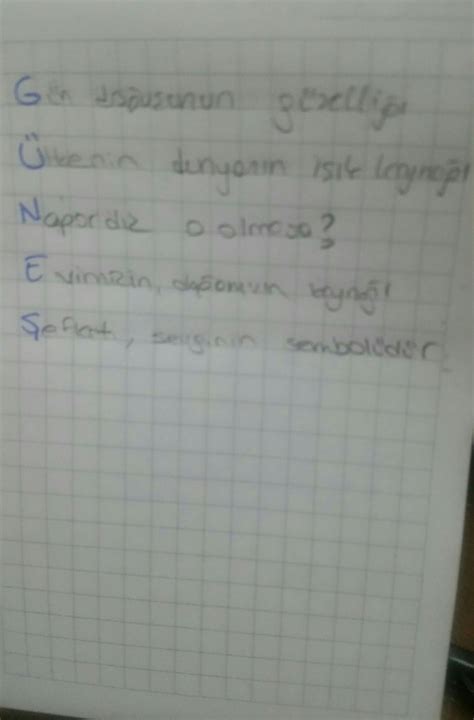 Gün doğuşunun güzelliği
Ülkenin dünyanın ışık kaynağı
Napardız o olmasa?
Evimizin, doğamızın kaynağı
Şefkat, sevginin sembolüdür